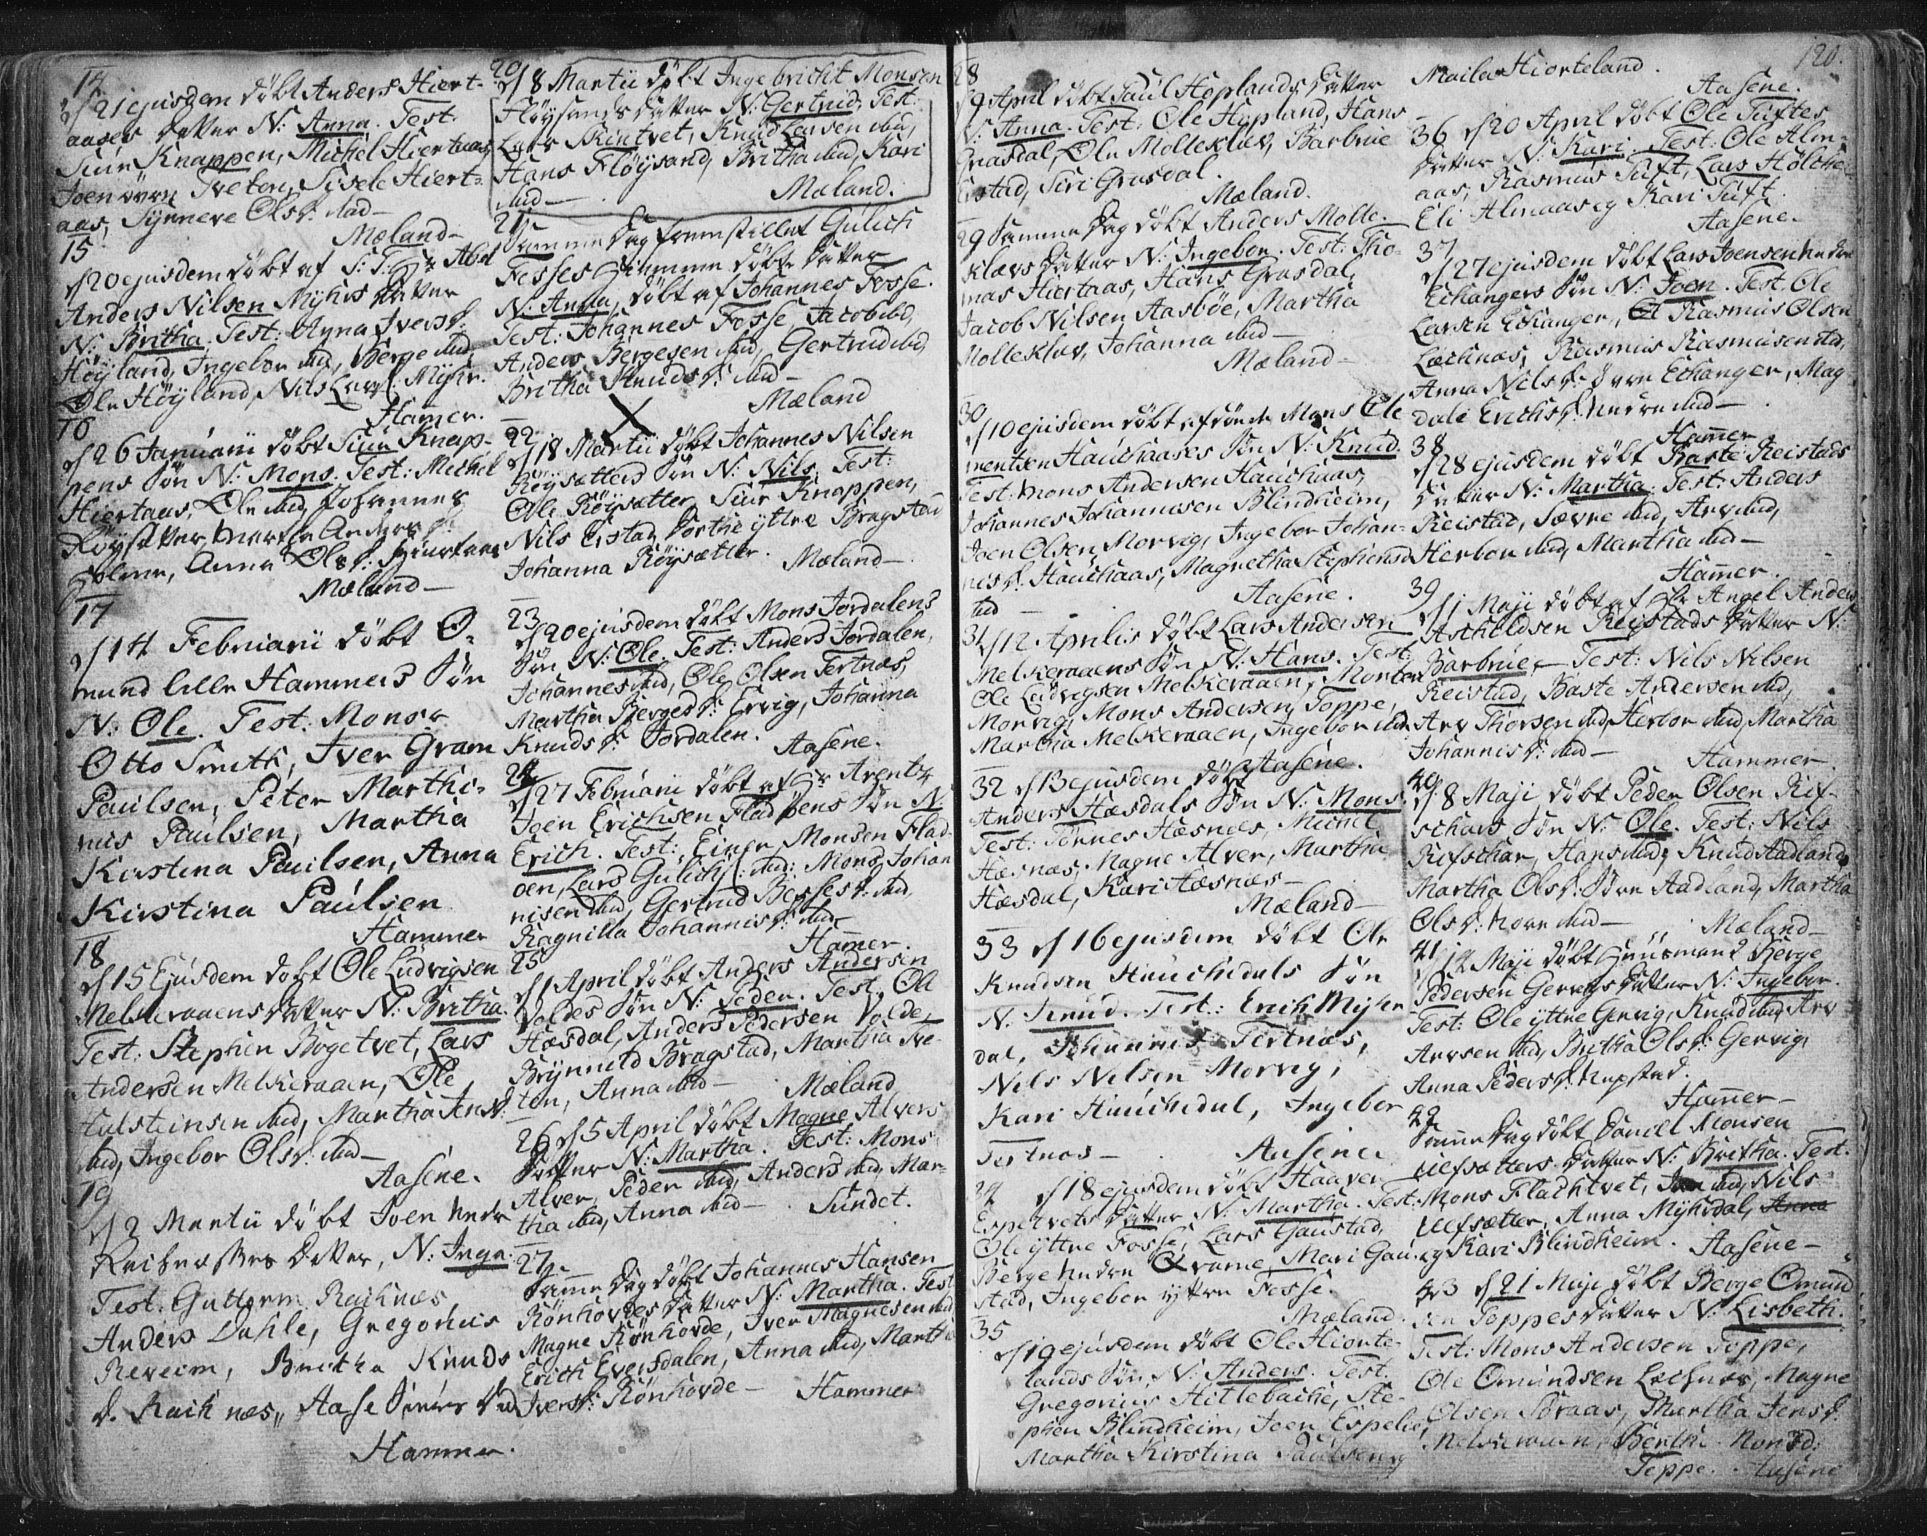 14
d 21 ejusdem döbt Anders Hiert-
aases Datter N: Anna. Test:
Siur Knappen, Michel Hiertaas,
Joen övre Tveten, Sisele Hiert-
aas, Synneve Olsd: ibid—
Mæland—
15
d 20 ejusdem döbt af S: T: Hr Abel
Anders Nilsen Myhrs Datter
N: Britha. Test: Anna Iversd:
Höyland, Ingebor ibid, Berge ibid,
Ole Höyland, Nils Lars: Myhr.
Hamer.
16
d 26 Januarii döbt Siur Knap-
pens Sön N: Mons. Test: Michel
Hiertaas, Ole ibid, Johannes
Röysetter, Anders
Anna Olsd: Hiertaas
Mæland—
17
d 14 Februarii döbt O-
mund lille Hammers Sön
N: Ole. Test: Monsr
Otto Smith, Iver Gram
Paulsen, Peter Marthi-
nus Paulsen, Martha
Kirstina Paulsen, Anna
Kirstina Paulsen
Hammer
18
d 15 Ejusdem dobt Ole Ludvigsen
Melkeraaens Datter N: Britha.
Test: Stephen Bogetvet, Lars
Andersen Melkeraaen, Ole
Halsteinsen ibid, Martha Jensd:
ibid, Ingebor Olsd: ibid—
Aasene.
19
d 2 Martii döbt Joen nedre
Datter, N: Inga.
Test: Guttorm Raknæs
Anders Dahle, Gregorius
Reveim, Britha Knuds
d. Raknæs, Aase ibid
Hammer.
20
d 8 Martii döbt Ingebricht Monsen
Flöysands Datter N: Gertrud. Test:
Lars Rintvet, Knud Larsen ibid,
Hans Flöysand, Britha ibid, Kari
ibid—
Mæland.
21
Samme Dag fremstillet Gulich
Fosses hiemme döbte Datter
N: Anna, döbt af Johannes Fosse.
Test: Johannes Fosse, Jacob ibid,
Anders Bergesen ibid, Gertrud ibid,
Britha Knudsd: ibid—
Mæland
X
22
d 18 Martii döbt Johannes Nilsen
Röysætters Sön N: Nils. Test:
Ole Röysætter, Siur Knappen,
Nils Eistad, Dorthe yttre Bragstad
Johanna Röysætter. Mæland—
23
d 20 ejusdem döbt Mons Jordalens
Sön N: Ole. Test: Anders Jordalen,
Johannes ibid, Ole Olsen Tertnæs,
Martha Bergesd: Ervig, Johanna
Knudsd: Jordalen. Aasene.
24
d 27 Februarii döbt af Hr Arentz
Joen Erichsen Fladöens Sön N:
Erich. Test: Einar Monsen Flad-
öen, Lars Gulichs: ibid: Mons Johan-
nisen ibid, Gertrud ibid,
Ragnilla Johannisd: ibid
Hamer.
25
d 1 April döbt Anders Andersen
Voldes Sön N: Peder. Test: Ole
Hæsdal, Anders Pedersen Volde,
Brynnild Bragstad, Martha Tve-
ten, Anna ibid— Mæland
26 d 5 April döbt Magne Alvers
Datter N: Martha. Test: Mons
Alver, Peder ibid, Anders ibid, Mar-
tha ibid, Anna ibid— Sundet.
27
Samme Dag döbt Johannes Hansen
Rönhovdes Datter N: Martha. Test:
Magne Rönhovde, Iver Magnesen ibid,
Erich Eversdalen, Anna ibid, Martha
Iversd: Rönhovde— Hammer
28
d 9 April döbt Paul Hoplands Datter
N: Anna. Test: Ole Hopland, Hans
Grasdal, Ole Molleklæv, Barbrue
Eistad, Siri Grasdal.
Mæland.
29 Samme Dag döbt Anders Molle-
klævs Datter N: Ingebor. Test: Tho-
mas Hiertaas, Hans Grasdal,
Jacob Nilsen Aasböe, Martha
Molleklæv, Johanna ibid—
Mæland—
30
d 10 ejusdem döbt Mons Cle-
mentsen Hauchaases Sön N: Knud.
Test: Mons Andersen Hauchaas,
Johannes Johannesen Blindheim,
Joen Olsen Morvig, Ingebor Johan-
nisd: Hauchaas, Magnetha Stephensd
ibid— Aasene.
31 d 12 Aprilis döbt Lars Andersen
Melkeraaens Sön N: Hans. Test:
Ole Ludvigsen Melkeraaen, Morten
Morvig, Mons Andersen Toppe,
Martha Melkeraaen, Ingebor ibid.
Aasene.
32 d 13 ejusdem döbt
Anders Hæsdals Sön N: Mons.
Test: Hæsnæs, Michel
Hæsnæs, Magne Alver, Martha
Hæsdal, Kari Hæsnæs—
Mæland—
33 d 16 ejusdem döbt Ole
Knudsen Hauchedals Sön
N. Knud. Test: Erich Myhr
dal, Johannes Tertnæs,
Nils Nilsen Morvig,
Kari Hauchedal, Ingebor
Tertnæs— Aasene
34 d 18 ejusdem döbt Haaver
Espetvets Datter N: Martha. Test:
Ole yttre Fosse, Lars Gaustad,
Berge nedre Qvame, Mari Gau-
stad, Ingebor yttre Fosse.
Mæland.
35
d 19 ejusdem döbt Ole Hiorte-
lands Sön N: Anders. Test.
Gregorius Hitlebache, Ste-
phen Blindheim, Joen Espelie,
Martha Kirstina Paulsen og
120.
Maila Hiorteland.
Aasene.
36 d 20 April döbt Ole Tuftes
Datter N: Kari. Test: Ole Alm-
aas, Rasmus Tuft, Lars Holthe,
Eli Almaas og Kari Tuft.
Aasene.
37
d 27 ejusdem döbt Lars Joensen nedre
Echangers Sön N: Joen. Test. Ole
Larsen Echanger, Rasmus Olsen
Læchnæs, Rasmus Rasmusen ibd,
Anna Nilsd: övre Echanger, Mag-
dale Erichsd: nedre ibid—
Hamer
38
d 28 ejusdem döbt Baste Reistads
Datter N: Martha. Test: Anders
Reistad, Sævre ibid, Arv ibid,
Herbor ibid, Martha ibid—
Hamer.
39
d 1 Maji döbt af Hr Angel Anders
Astholdsen Reistads Datter N:
Barbrue— Test: Nils Nilsen
Reistad, Baste Andersen ibid,
Arv Thorsen ibid, Herbor ibid, Martha
Johannisd: ibid— Hammer
40
d 8 Maji döbt Peder Olsen Rif-
schars Sön N: Ole. Test: Nils
Rifschar, Hans ibid, Knud Aadland,
Martha Olsd: övre Aadland, Martha
Olsd: ibid— Mæland—
41
d 14 Maji döbt Huusmand Berge
Pedersen Gervigs Datter N: Ingebor.
Test: Ole yttre Gervig, Knud ibid, Arv
Arvsen ibid, Britha Olsd: Gervig,
Anna Pedersd: Hopstad.
Hamer—
42
Samme Dag döbt Daniel Monsen
Ulfsætters Datter N: Britha. Test.
Mons Flachtvet, ibid, Nils
Ulfsætter, Anna Myhrdal, Anna
og Kari Blindheim. Aasene—
43 d 21 Maji döbt Berge Omund
sen Toppes Datter N: Lisbeth.
Test: Mons Andersen Toppe,
Ole Omundsen Læchnæs, Magne
Olsen Söraas, Martha Jensd:
Melkeraaen, Berthe Monsd:
Toppe. Aasene